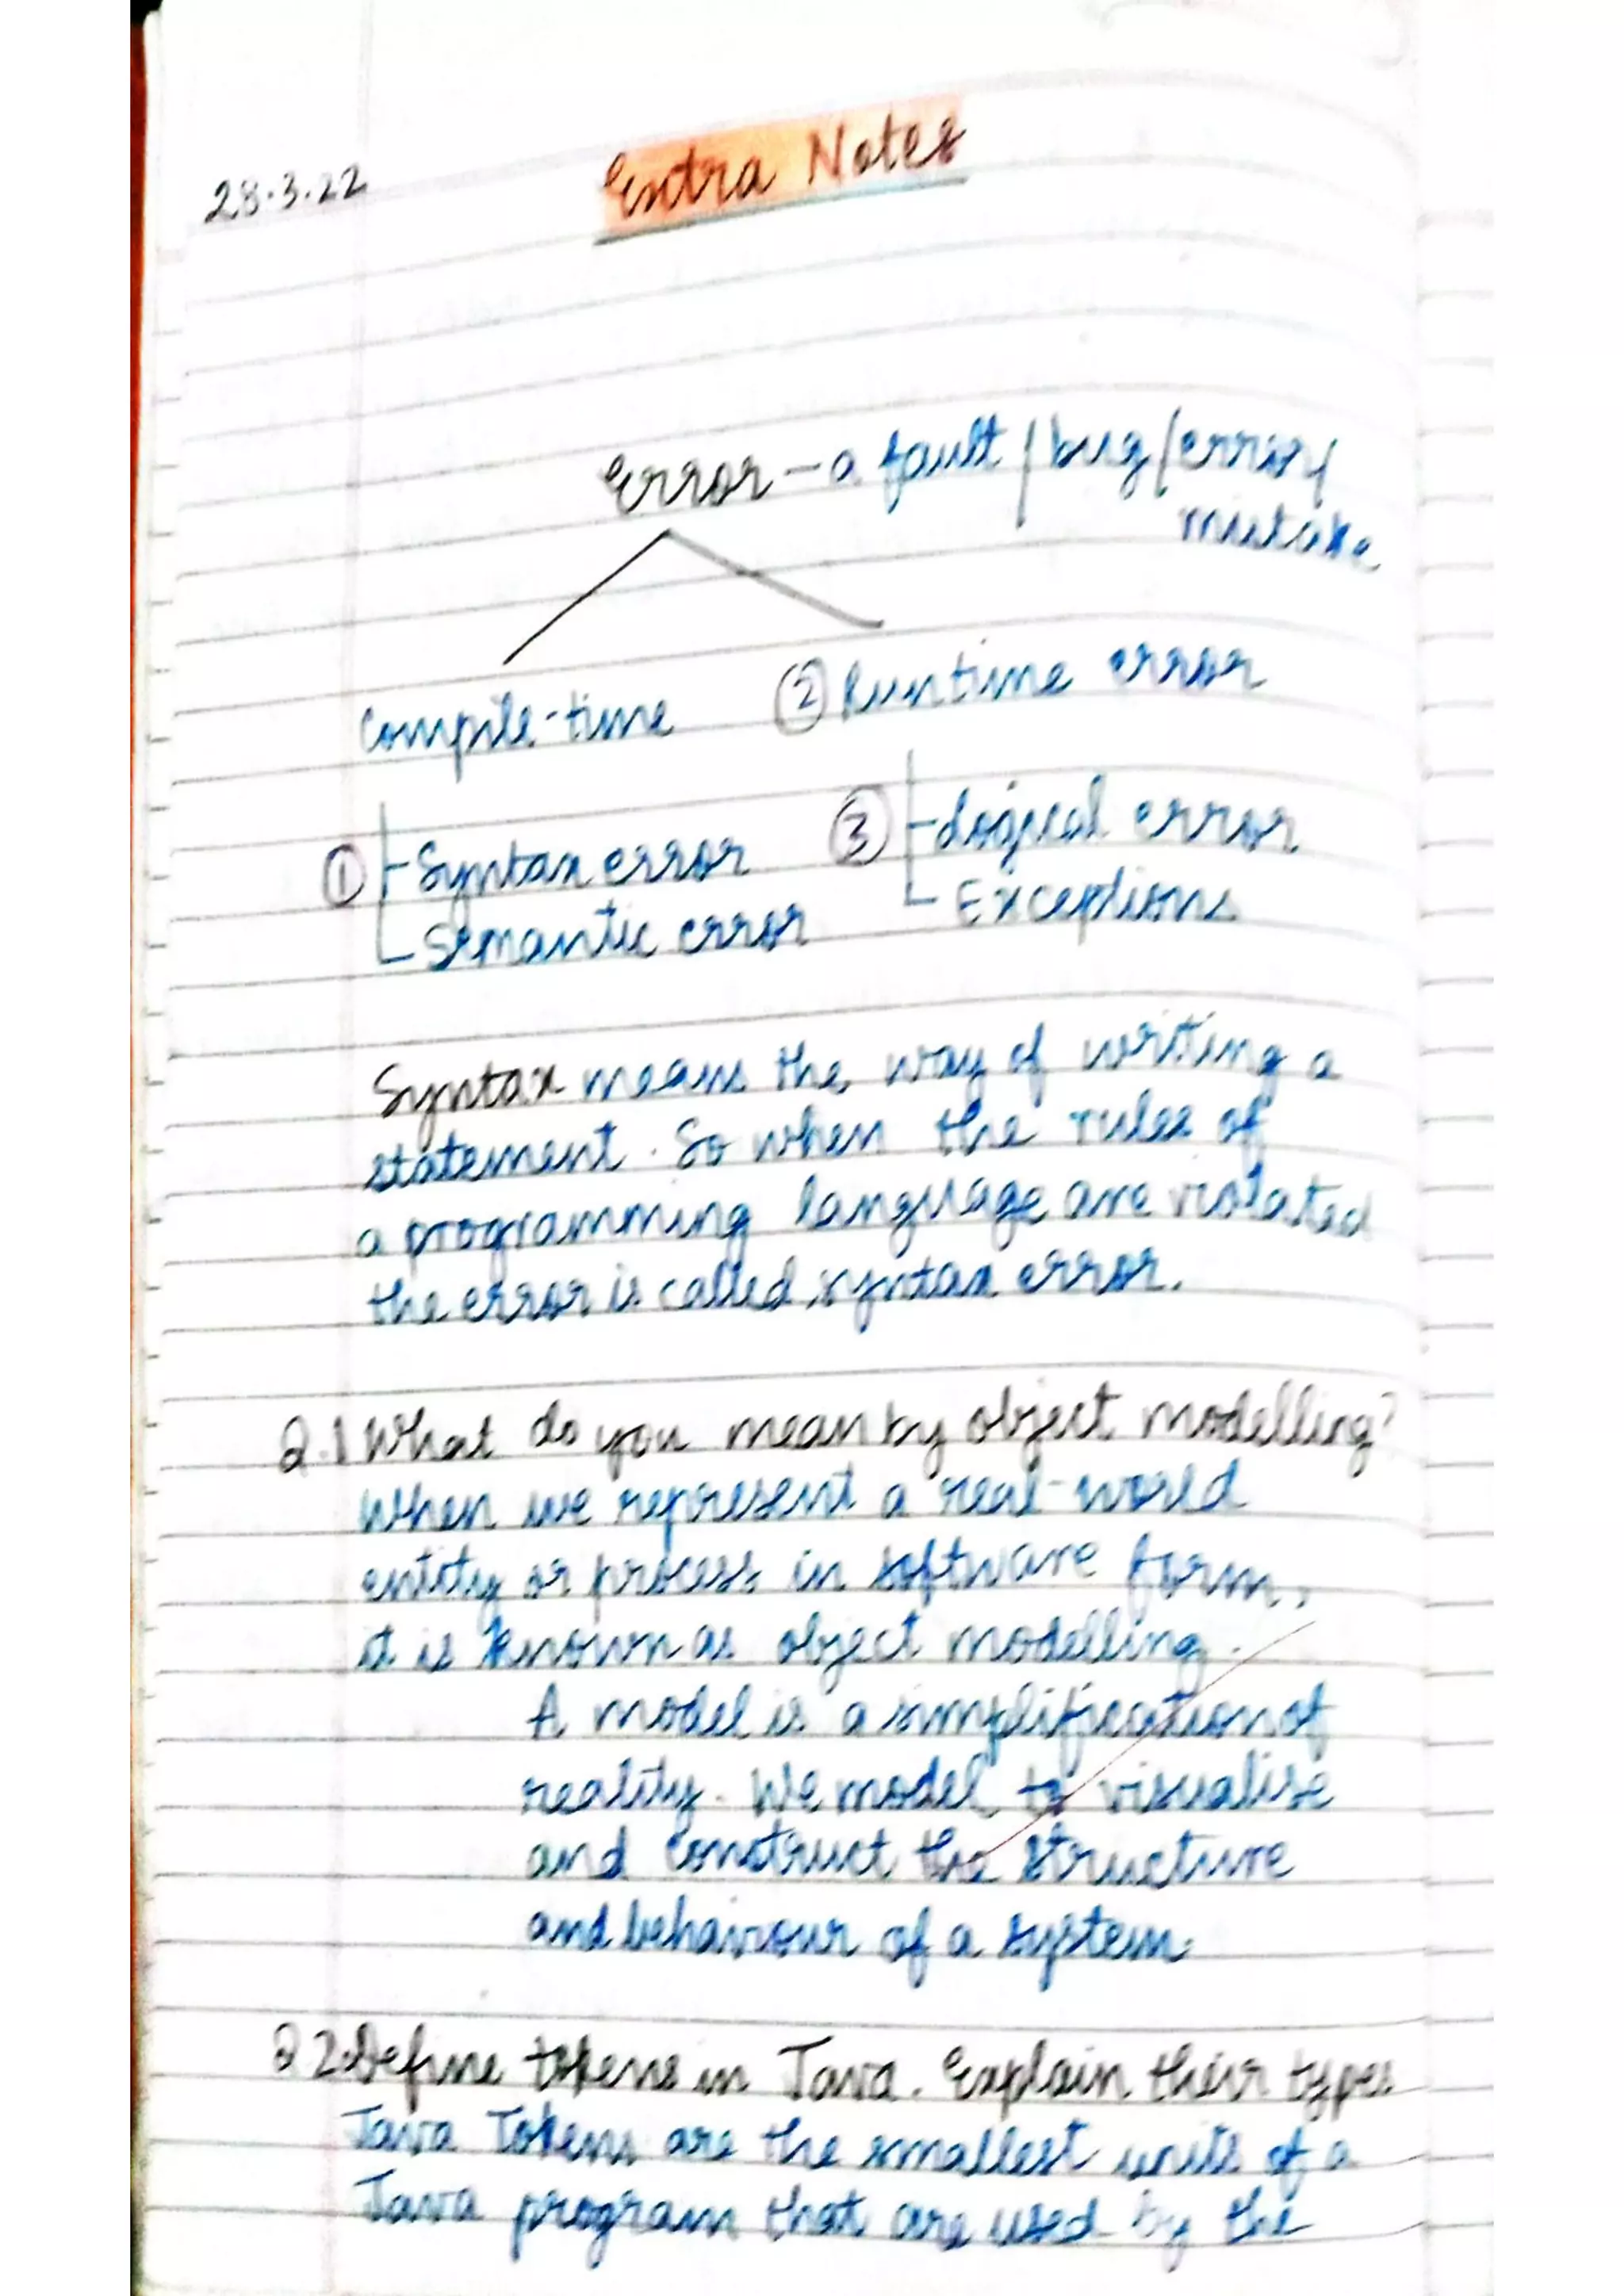 28.3.22
Extra Notes
Error - a fault / bug / error /
mistake
Compile-time
② Runtime error
① Syntax error
Semantic error
③ Logical error
Exceptions
Syntax means the way of writing a
statement. So when the rules of
a programming language are violated
the error is called syntax error.
Q.1 What do you mean by object modelling?
When we represent a real-world
entity or process in software form,
it is known as object modelling.
A model is a simplification of
reality. We model to visualise
and construct the structure
and behaviour of a system.
Q 2 Define tokens in Java. Explain their types
Java Tokens are the smallest units of a
Java program that are used by the